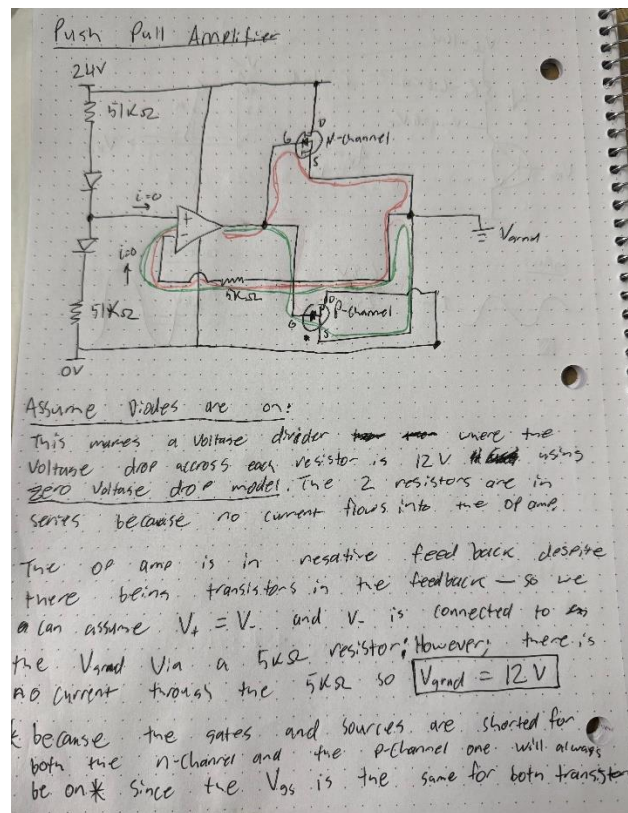 Push Pull Amplifier
24V
51KΩ
D
G
N-channel
S
i=0
+
-
i=0
Vgrnd
5KΩ
D
P-channel
G
S
51KΩ
0V
Assume Diodes are on:
This makes a voltage divider where the
voltage drop accross each resistor is 12V using
zero voltage drop model. The 2 resistors are in
series because no current flows into the op amp.
The op amp is in negative feed back despite
there being transistors in the feedback – so we
can assume V+ = V- and V- is connected to
the Vgrnd via a 5KΩ resistor; However; there is
no current through the 5KΩ so Vgrnd = 12V
* because the gates and sources are shorted for
both the n-channel and the p-channel one will always
be on* since the Vgs is the same for both transistor